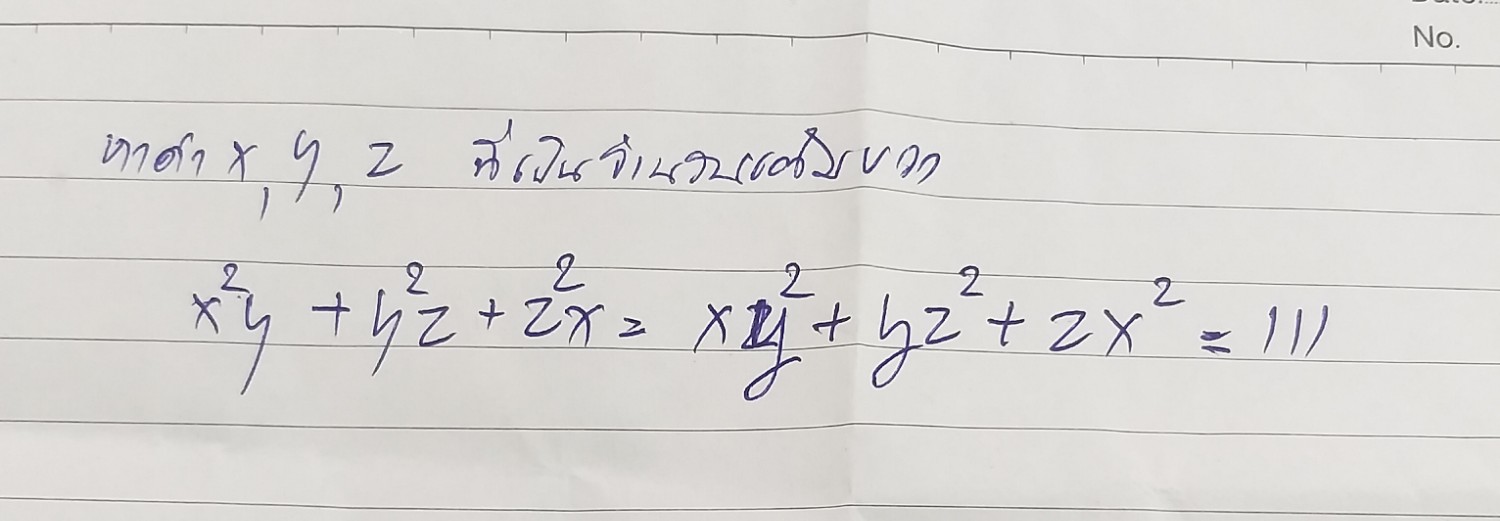 No.
หาค่า x, y, z ที่เป็นจำนวนเต็มบวก
x²y + y²z + z²x = xy² + yz² + zx² = 111